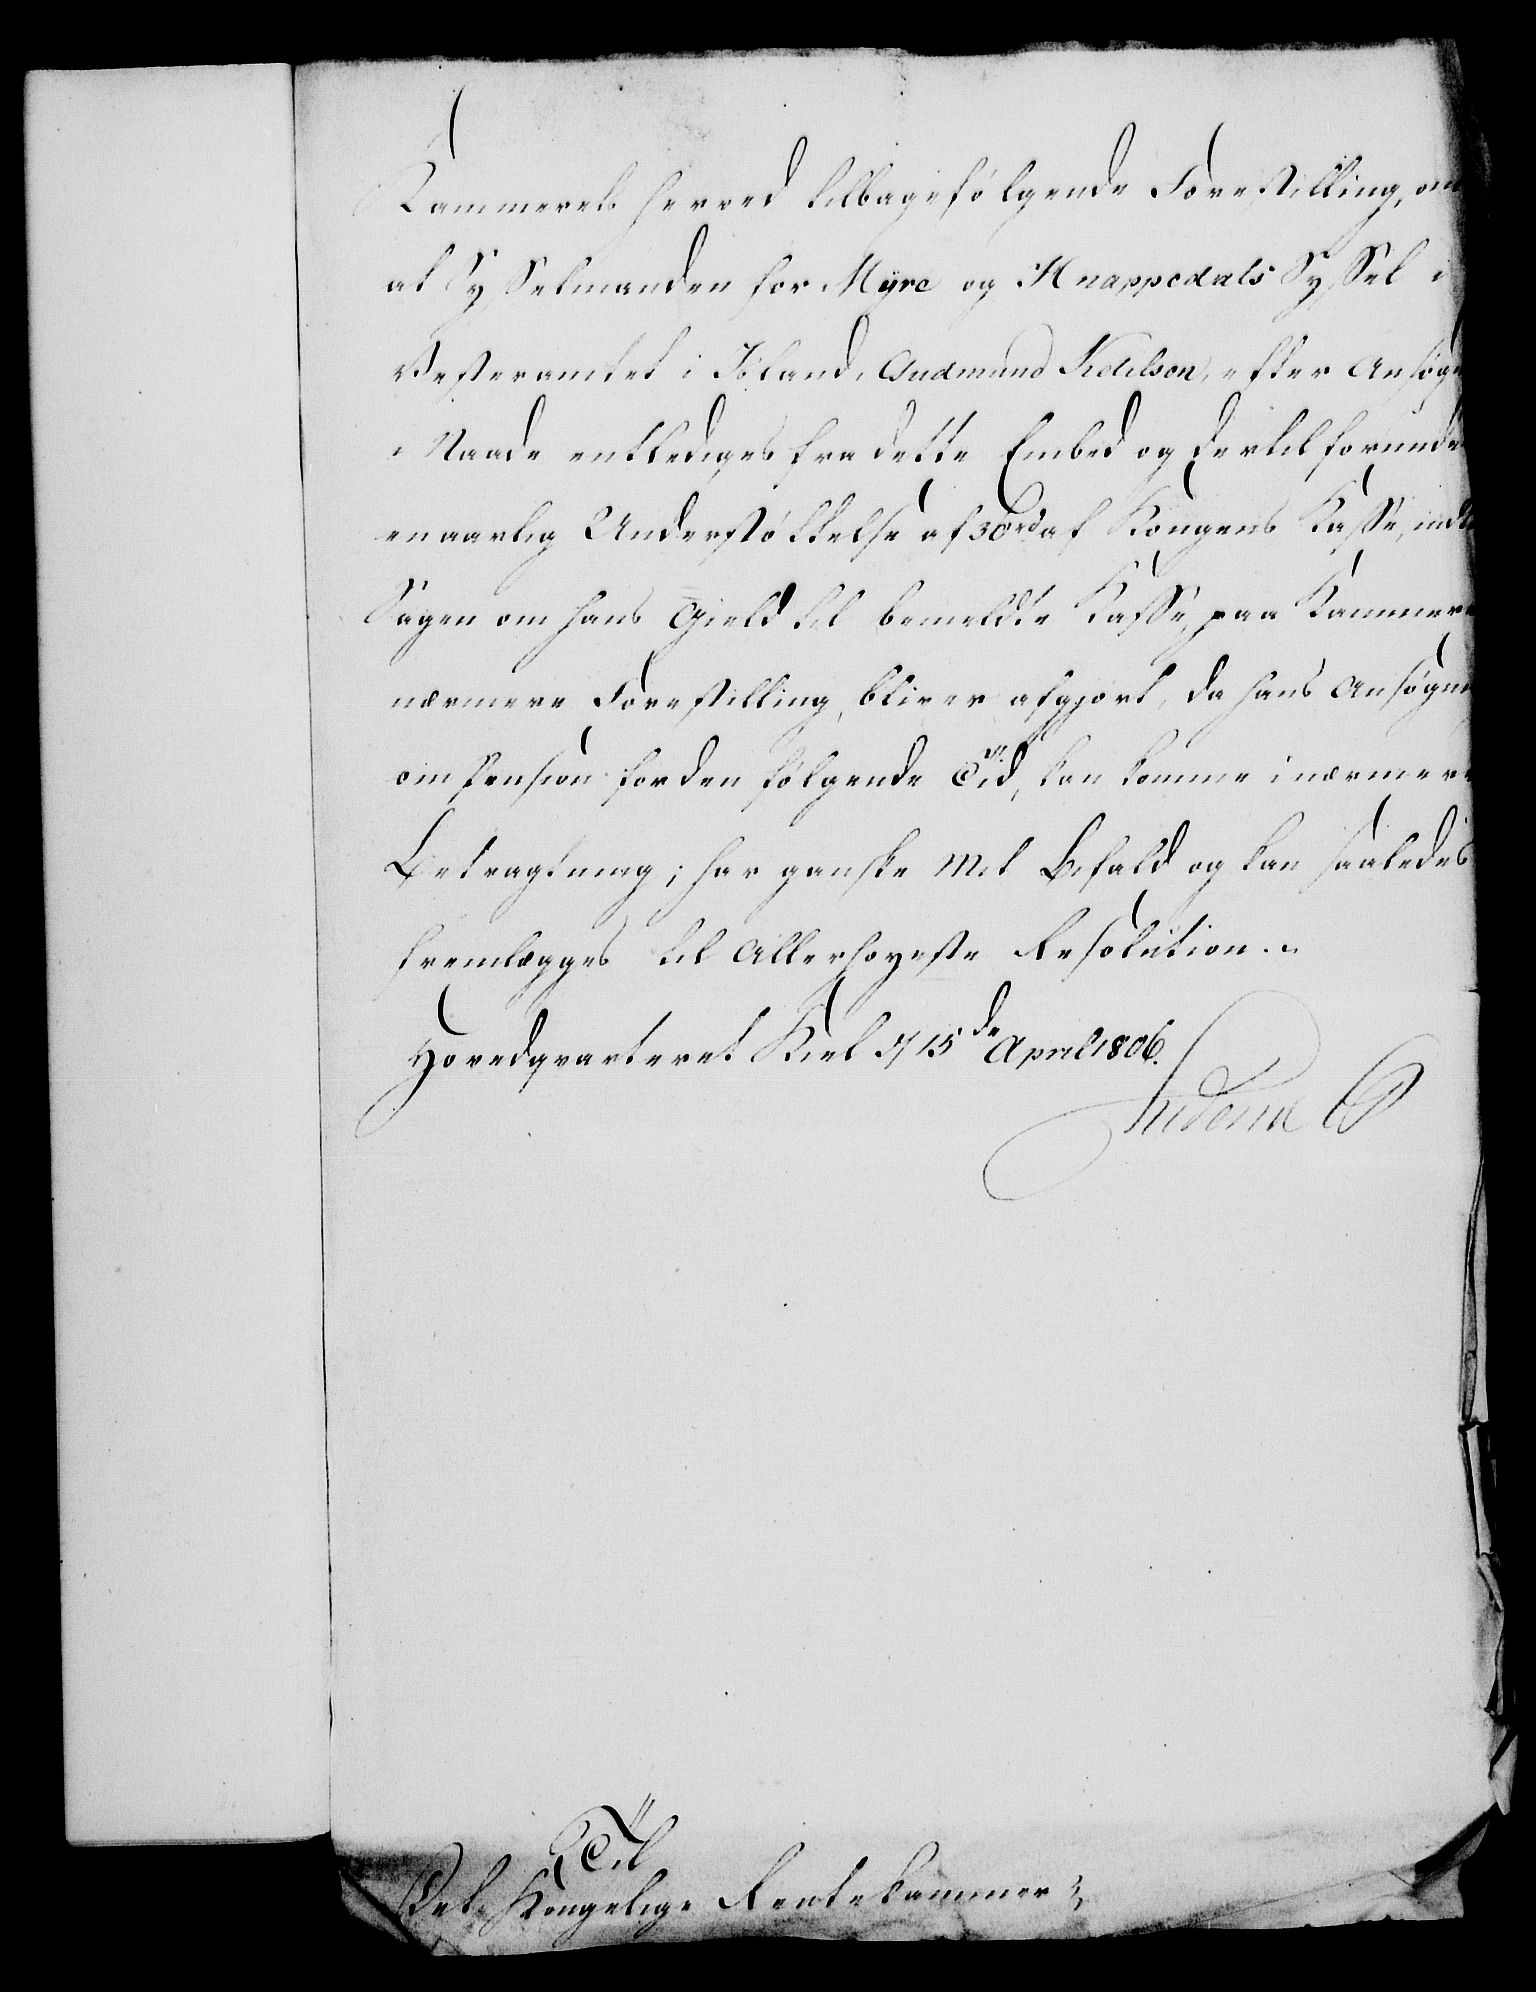 Kammerets herved tilbagefølgende Forestilling, om
at Sysselmanden for Myre og Hnappedals Syssel i
Vesteramtet i Island, Gudmund Ketilson, efter Ansøgn
i Naade entlediges fra dette Embed og dertil forunde
en aarlig Understøttelse af 30 rd af Kongens Kasse, indt
Sagen om hans Gield til bemeldte Kasse, paa Kammere
nærmere Forestilling, bliver afgjort, da hans Ansøgni
om Pension for den følgende Tid, kan komme i nærmere
Betragtning; har ganske Mit Bifald og kan saaledes
fremlægges til Allerhøyeste Resolution.
Hovedqvarteret Kiel d 15de April 1806.
Friderich CP
Til
Det Kongelige Rentekammer